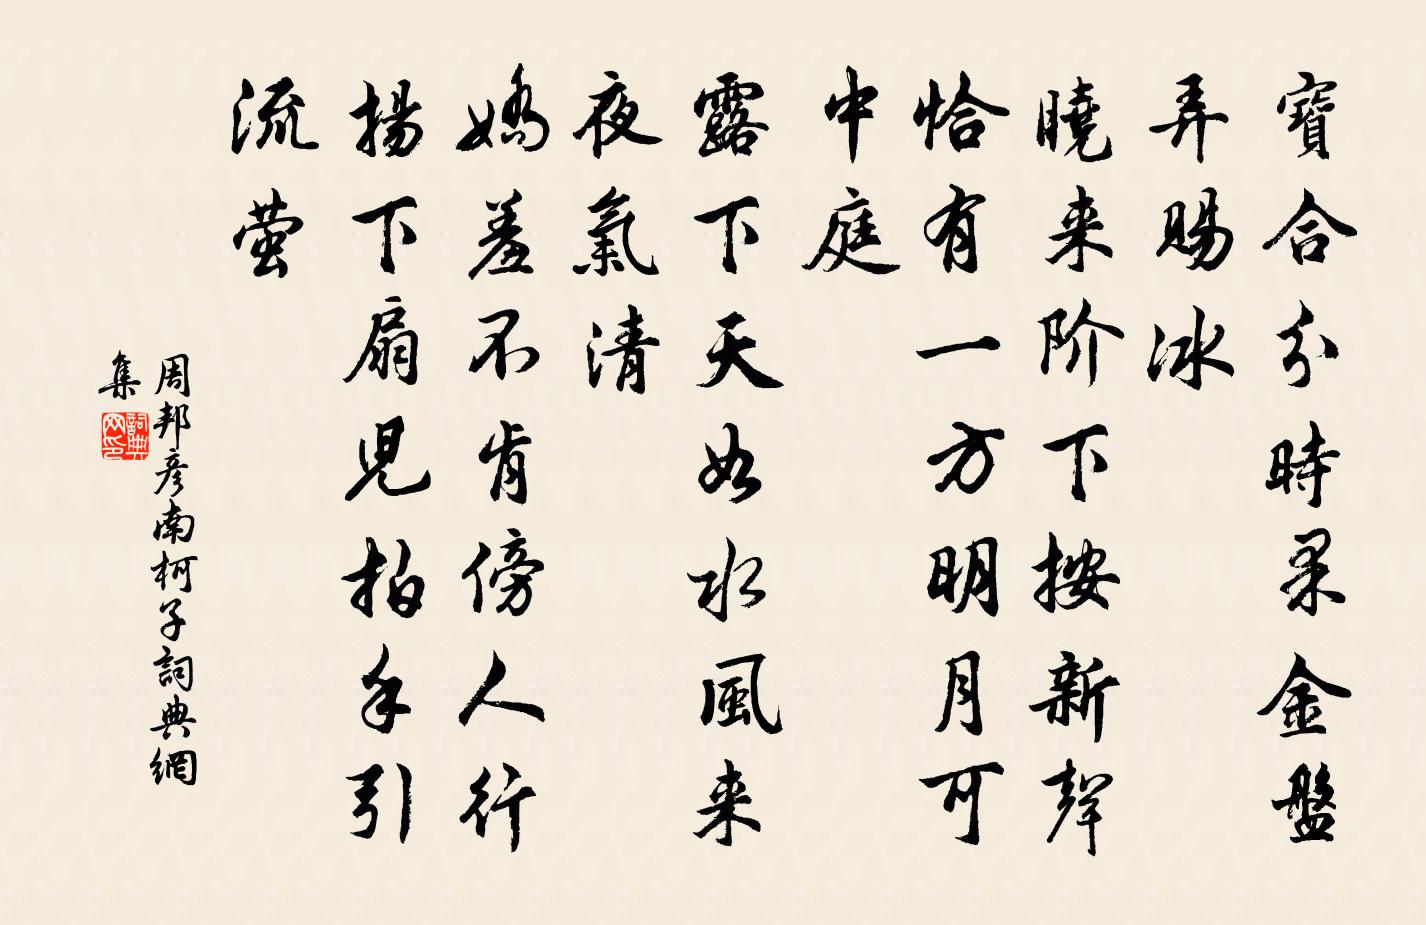 寶合分時果金盤
弄賜冰
曉来阶下按新聲
恰有一方明月可
中庭
露下天如水風来
夜氣清
嬌羞不肯傍人行
揚下扇兒拍手引
流萤
周邦彦南柯子詞典網
集
詞典网印